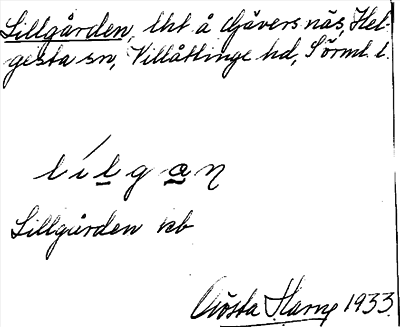 Lillgården, lht å Djäversnäs, Hel-
gesta sn, Villåttinge hd, Sörml. l.
lílgan
Lillgården kb
Gösta Harne 1933.